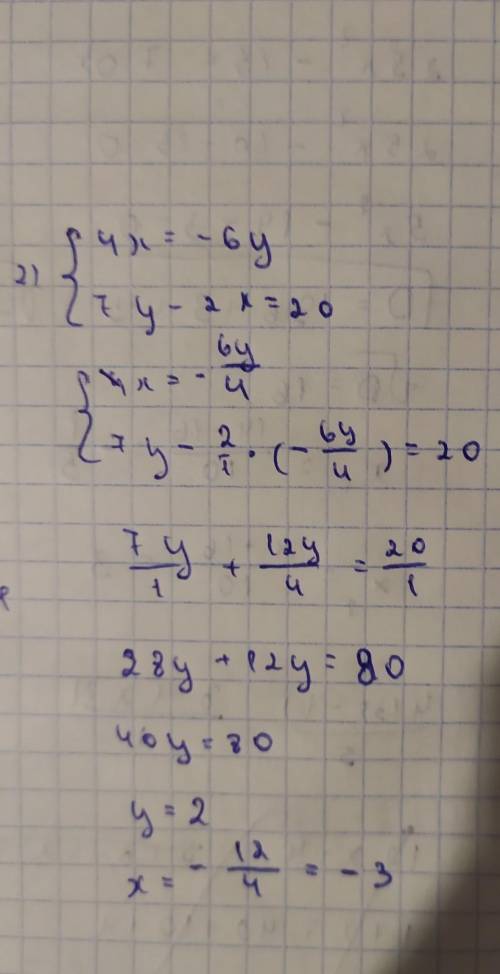 2) { 4x = - 6y
7y - 2x = 20
{ x = - 6y/4
7y - 2/1 · (- 6y/4) = 20
7y/1 + 12y/4 = 20/1
28y + 12y = 80
40y = 80
y = 2
x = - 12/4 = - 3